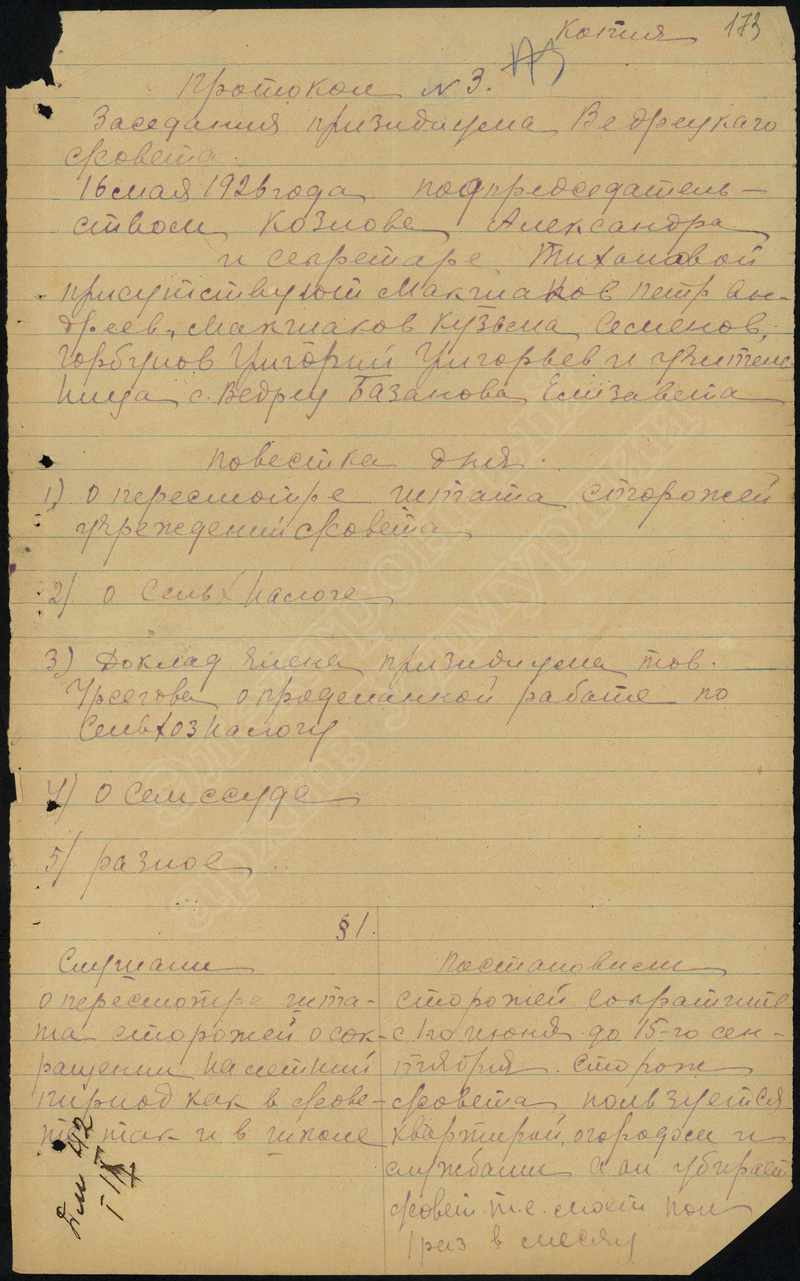 Копия 173
Протокол № 3.
Заседания призидиума Ведрецкаго
с/совета.
16 мая 1926 года под председатель-
ством Козлова Александра
и секретаре Тихоновой
присутствуют Макшаков Петр Ан-
дреев., Макшаков Кузьма Семенов,
Горбунов Григорий Григорьев и учитель-
ница с. Ведрец Базанова Елизавета
Повестка дня.
1) О пересмотре штата сторожей
учреждений с/совета
2) О Сельхналоге
3) Доклад члена призидиума тов.
о проделанной работе по
Сельхозналогу
4) О Семссуде
5) разное
§ 1.
Слушали
о пересмотре шта-
та сторожей о сок-
ращении на летний
пириод как в с/сове-
те так и в школе
Постановили
сторожей сократить
с 1го июня до 15-го сен-
тября. Сторож
с/совета пользуется
квартирой, огородом и
службами и убирает
с/совет т.е. моет пол
1 раз в месяц